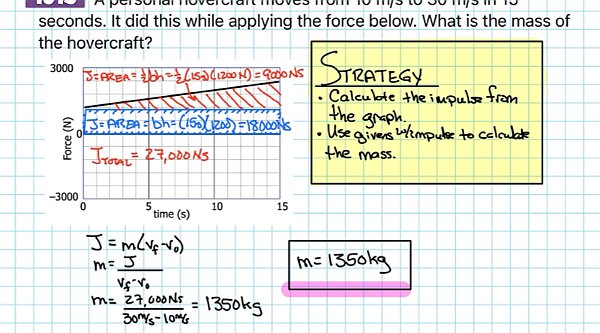 A personal hovercraft moves from 10 m/s to 30 m/s in 15
seconds. It did this while applying the force below. What is the mass of
the hovercraft?
3000
J=AREA=½bh=½(15s)(1200N)=9000NS
J=AREA=bh=(15s)(1200)=18000NS
0
Force (N)
JTOTAL = 27,000NS
-3000
0 5 10 15
time (s)
STRATEGY
• Calculate the impulse from
the graph.
• Use givens w/impulse to calculate
the mass.
J = m(vf-vo)
m = J
vf-vo
m = 27,000NS = 1350kg
30m/s-10m/s
m= 1350kg